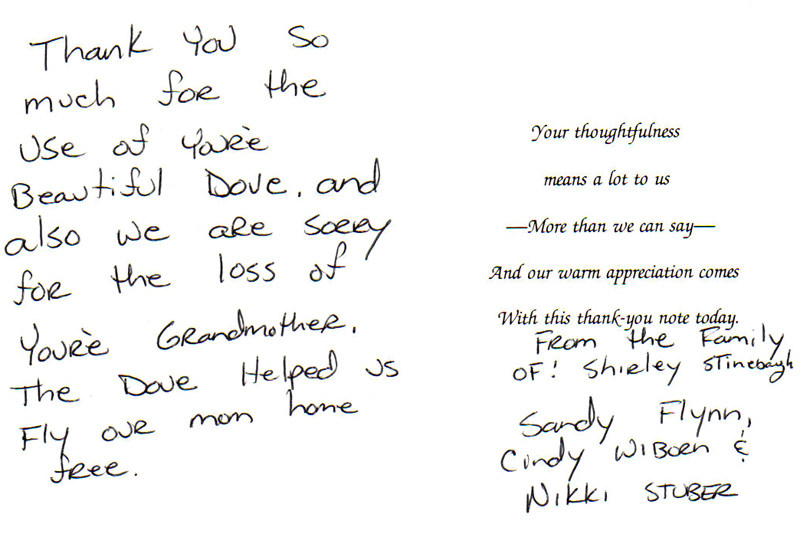 Thank You So
much for the
use of Youre
Beautiful Dove, and
also we are sorry
for the loss of
Youre Grandmother.
The Dove Helped us
Fly our mom home
free.
Your thoughtfulness
means a lot to us
—More than we can say—
And our warm appreciation comes
With this thank-you note today.
From the Family
OF! Shirley STinebagh
Sandy Flynn,
Cindy WIBorn &
Nikki STUBER